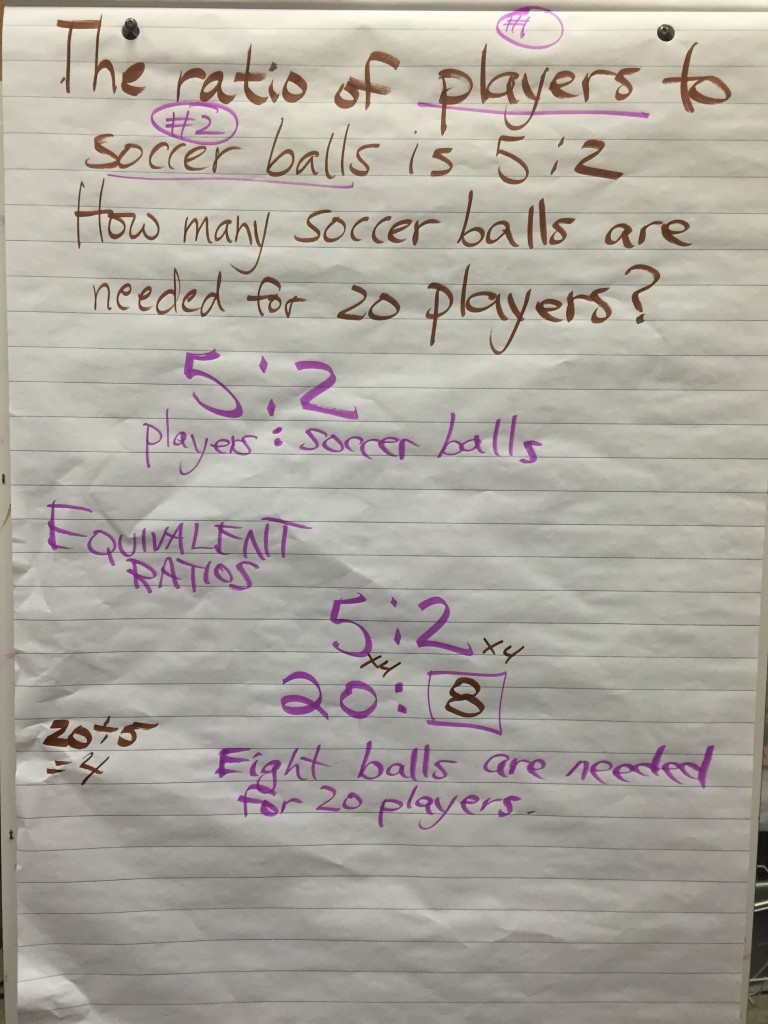 #1
The ratio of players to
#2
soccer balls is 5:2
How many soccer balls are
needed for 20 players?
5:2
players : soccer balls
EQUIVALENT
RATIOS
5:2
x4 x4
20: 8
20÷5
=4
Eight balls are needed
for 20 players.